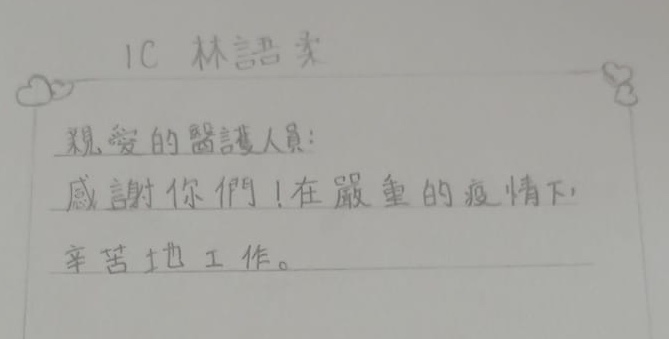 1C 林語柔
親愛的醫護人員:
感謝你們!在嚴重的疫情下,
辛苦地工作。